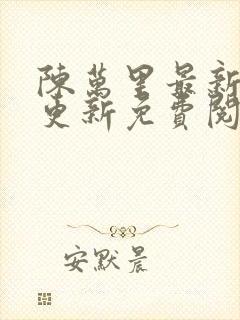 陳萬里最新
更新免費閱
安默晨